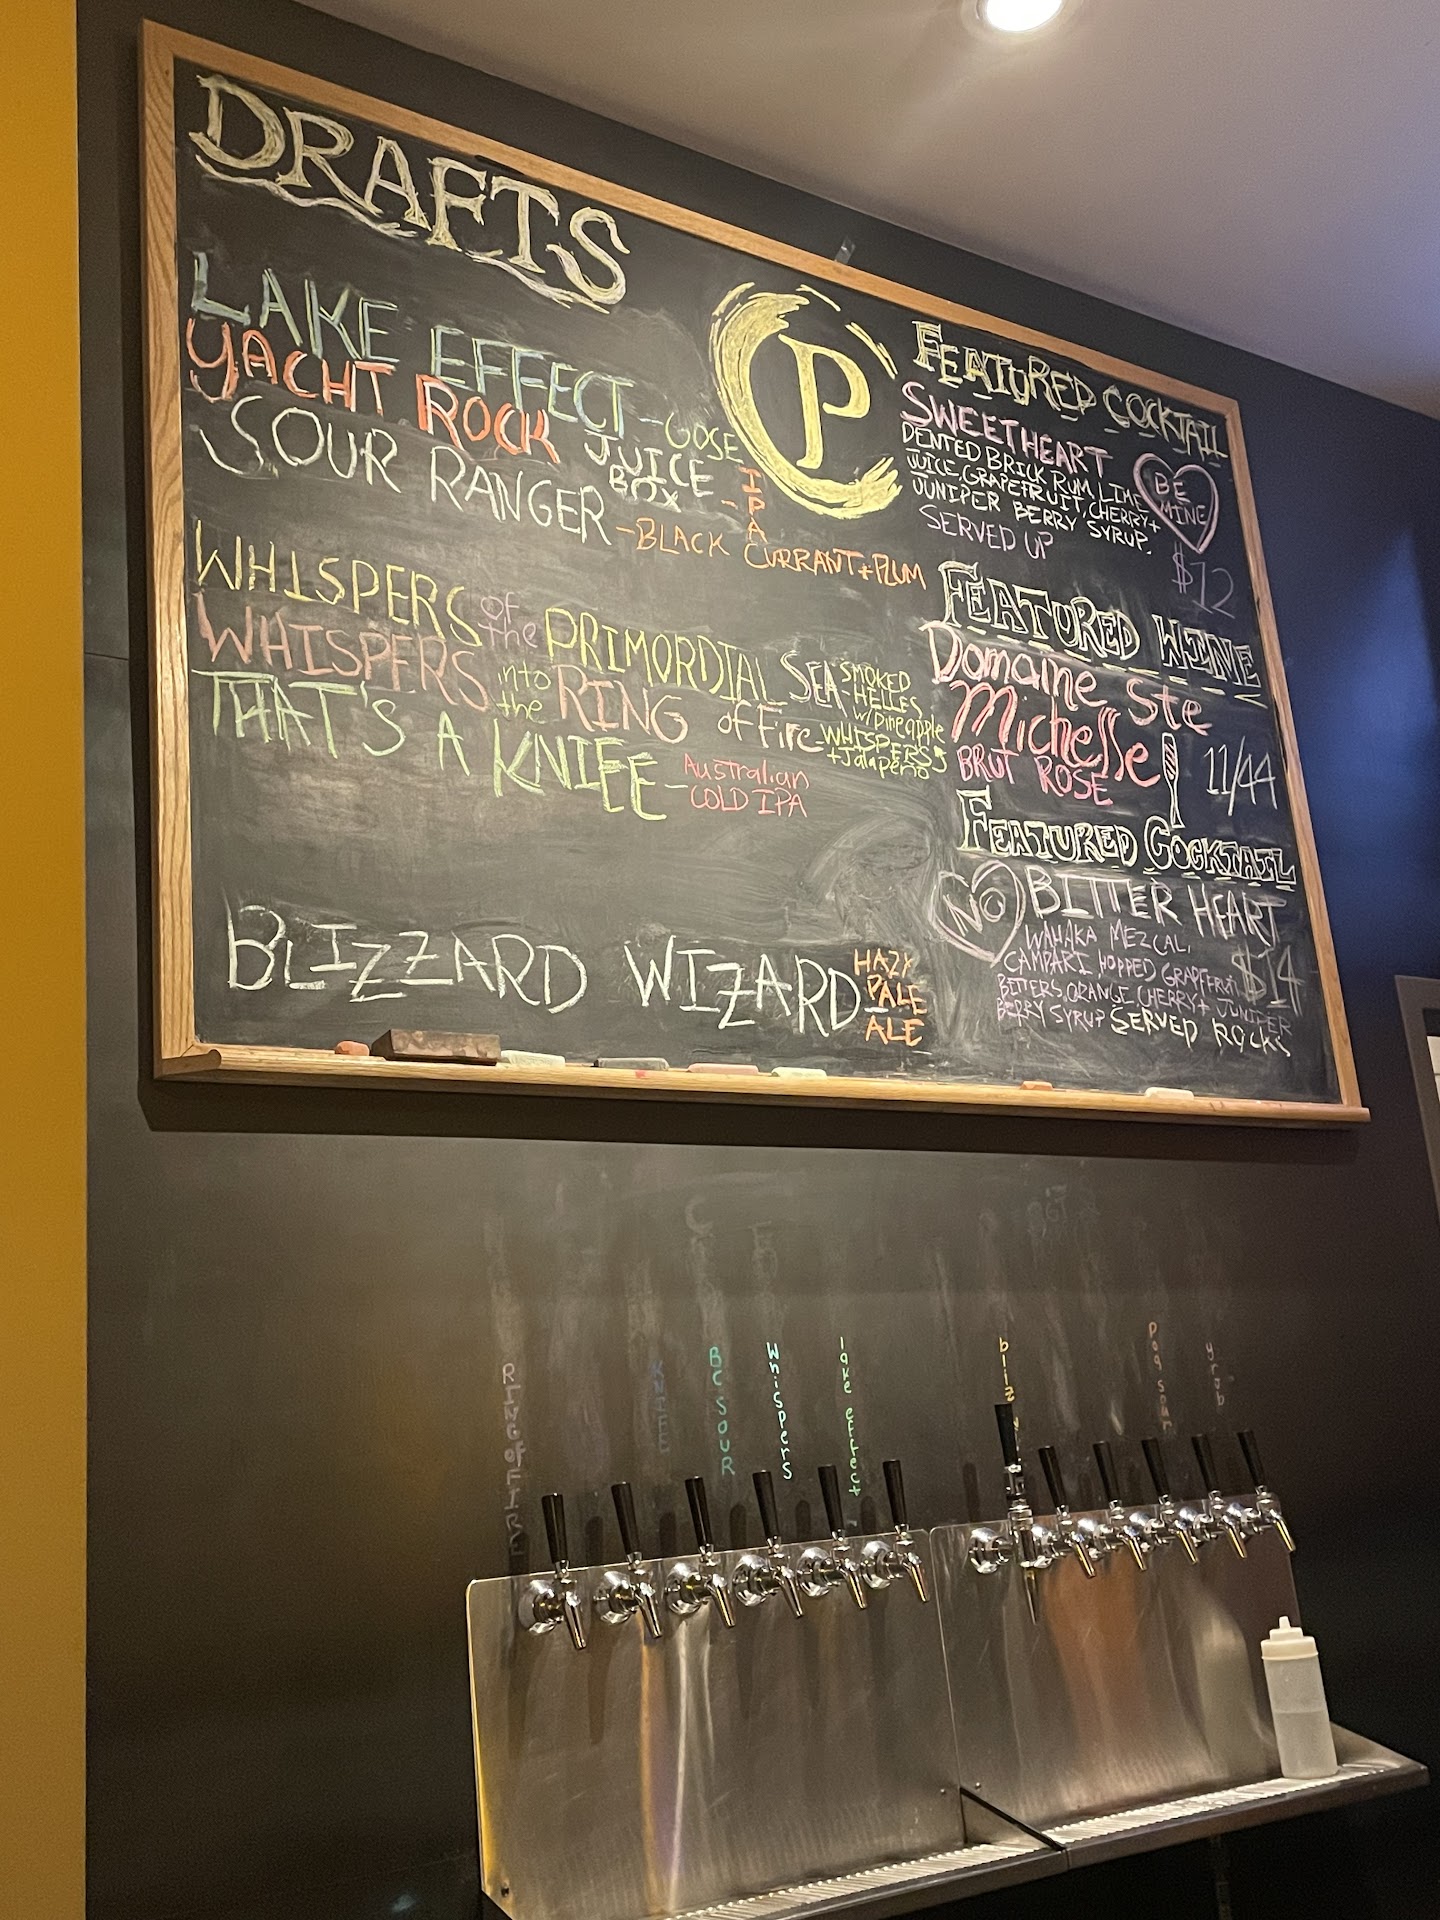 DRAFTS
LAKE EFFECT - GOSE
YACHT ROCK JUICE BOX - IPA
SOUR RANGER - BLACK CURRANT + PLUM
WHISPERS of the PRIMORDIAL SEA - SMOKED HELLES w/ Pineapple
WHISPERS into the RING of Fire - WHISPERS + Jalapeño
THAT'S A KNIFE - Australian COLD IPA
BLIZZARD WIZARD HAZY PALE ALE
P
FEATURED COCKTAIL
SWEETHEART
DENTED BRICK RUM, LIME
JUICE, GRAPEFRUIT, CHERRY +
JUNIPER BERRY SYRUP.
SERVED UP
BE MINE
$12
FEATURED WINE
Domaine Ste
Michelle
BRUT ROSE
11/44
FEATURED COCKTAIL
NO BITTER HEART
WAHAKA MEZCAL,
CAMPARI HOPPED GRAPEFRUIT
BITTERS, ORANGE, CHERRY + JUNIPER
BERRY SYRUP SERVED ROCKS
$14
RING OF FIRE
KNIFE
BC SOUR
Whispers
lake effect
bliz